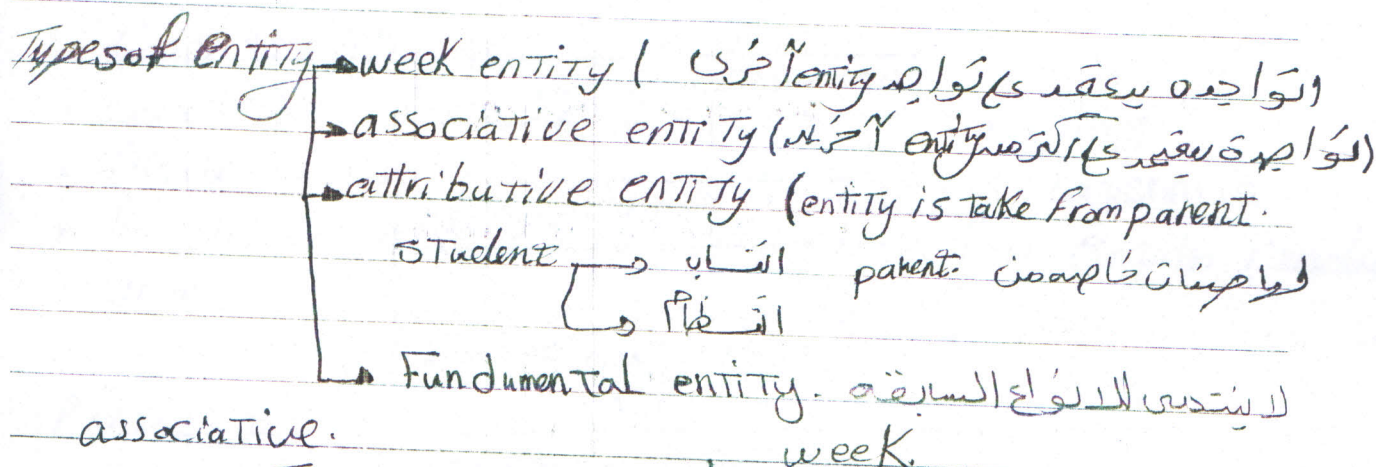 Types of entity → week entity ( تواجده يعتمد على تواجد entity آخرى
→ associative entity (تواجدة يعتمد على اكتر من entity آخرى)
→ attributive entity (entity is take from parent.
student → انتساب parent. مواصفات خاصه من
→ انتظام
→ Fundumental entity. لا ينتمى للانواع السابقه
associative. week.